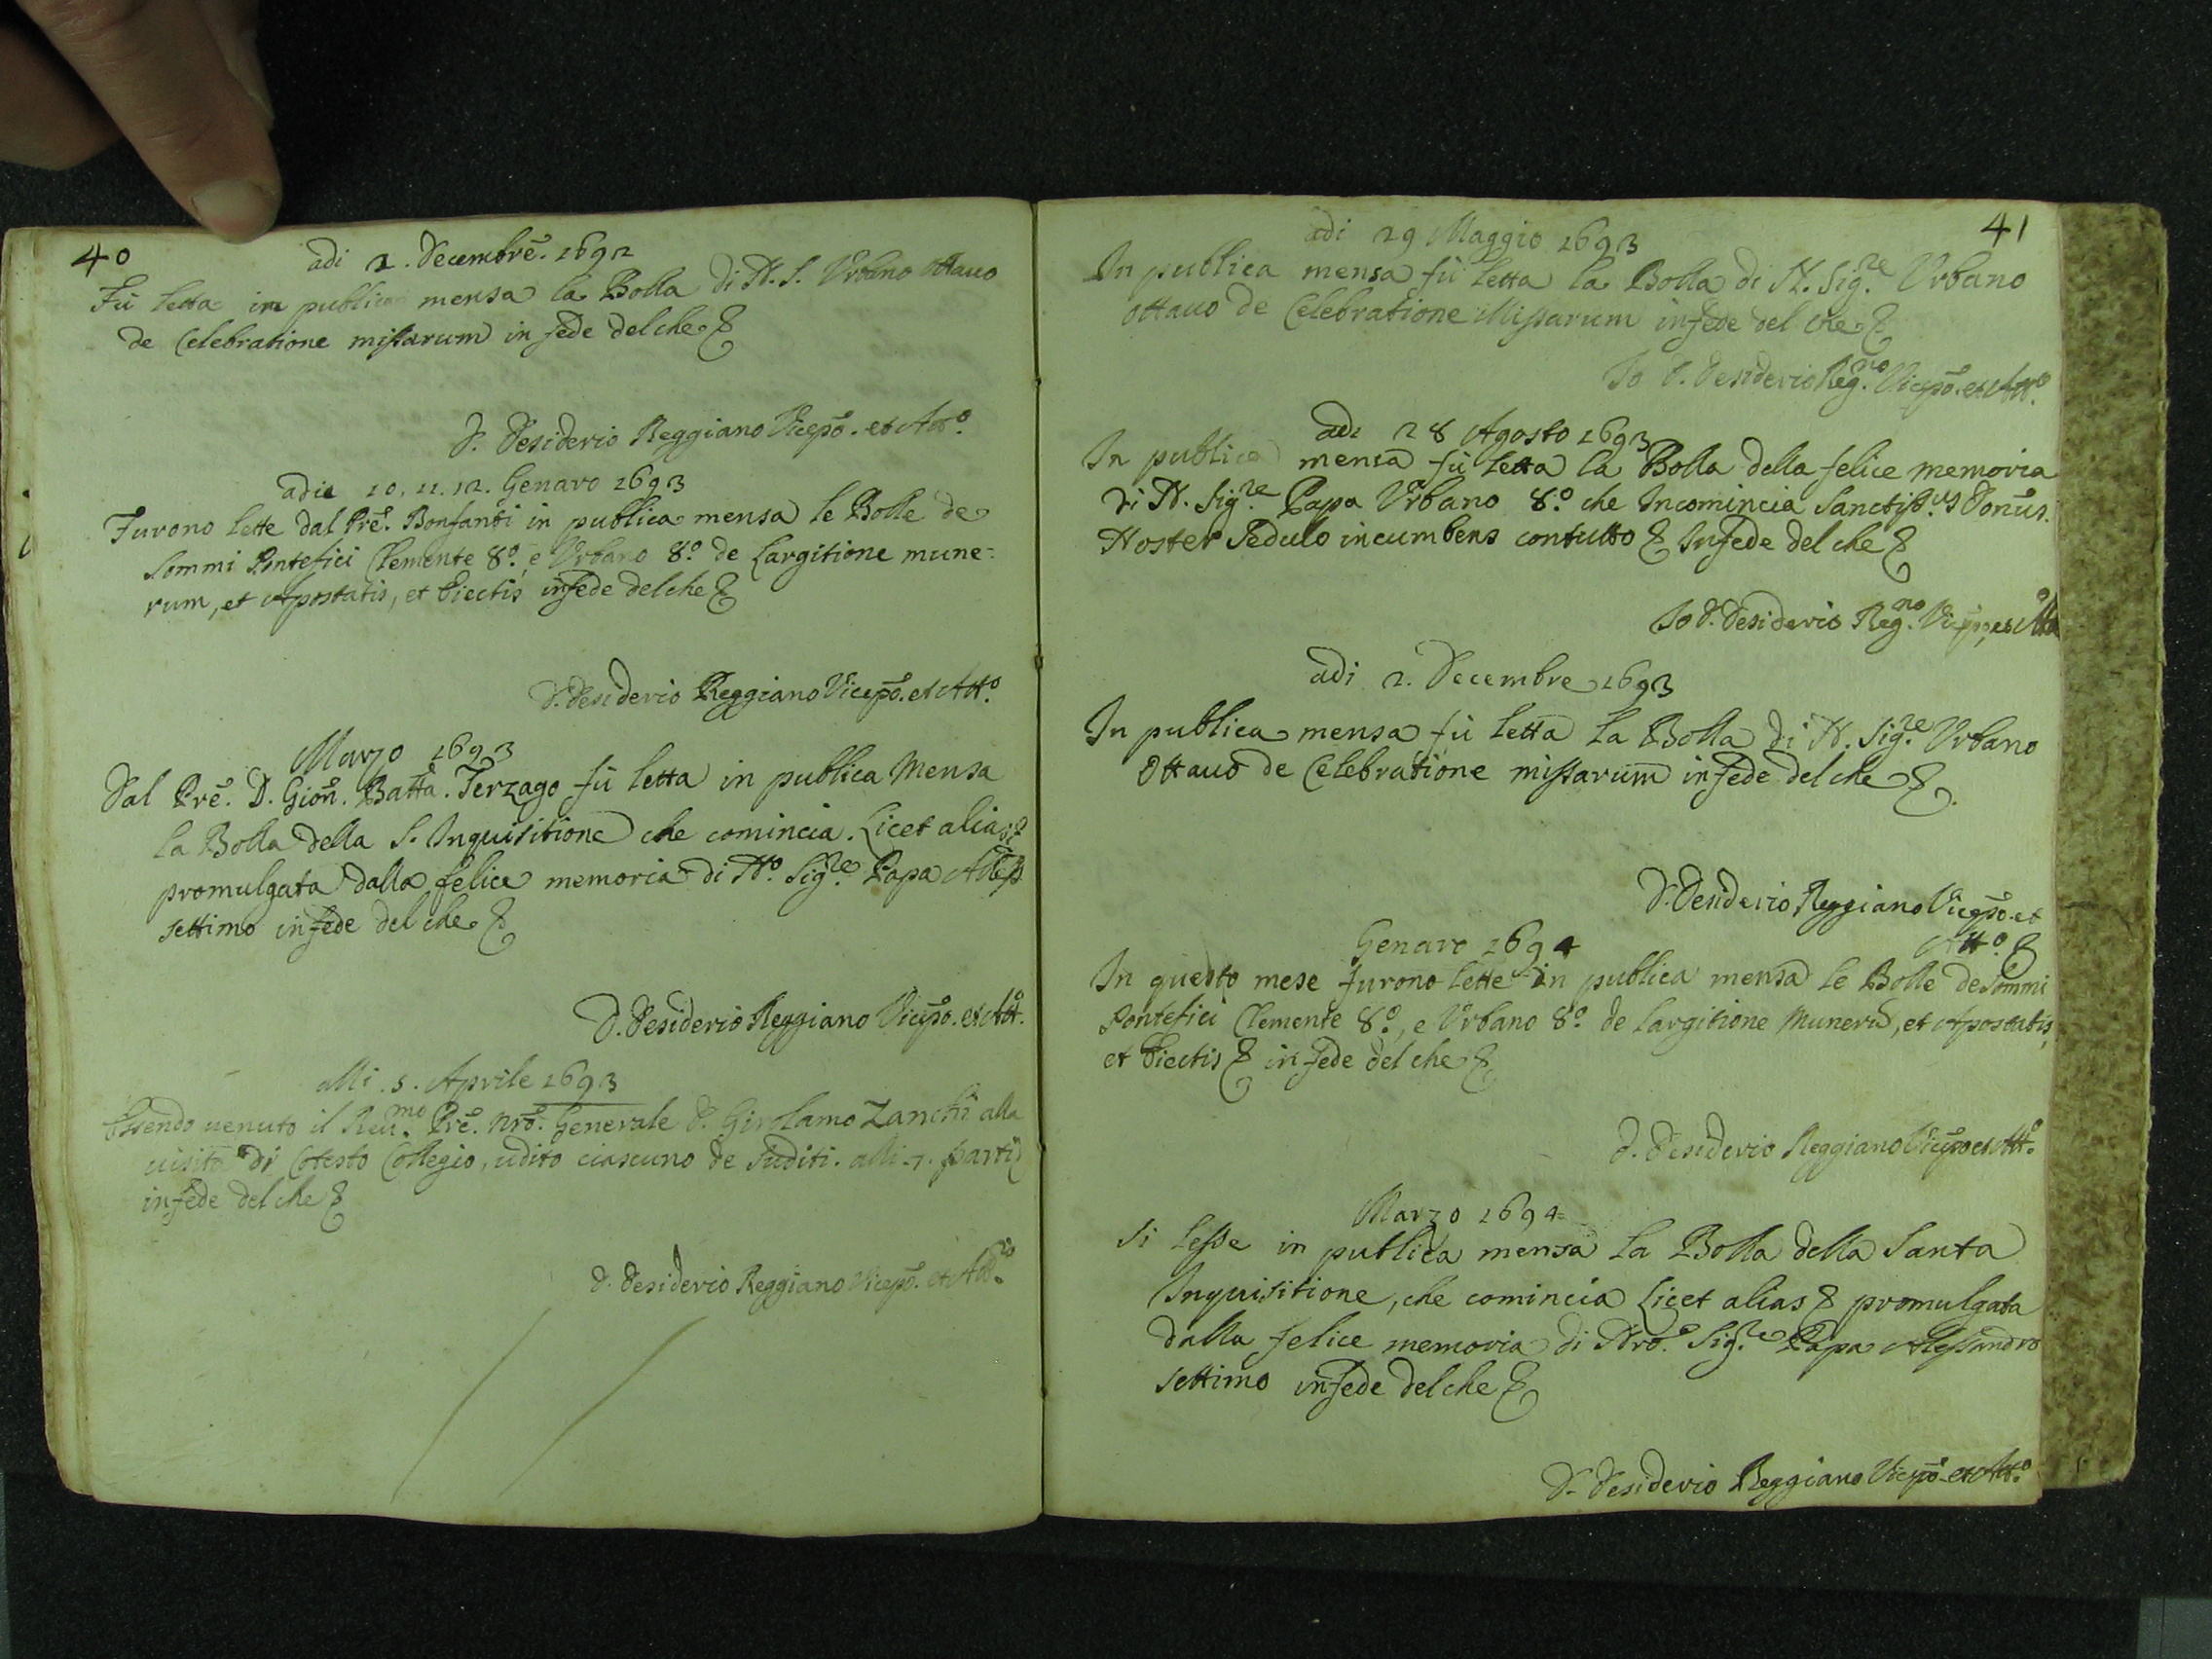 40
adi 2. Decembrē. 1692
Fù letta in publica mensa la Bolla di N. S. Vrbano ottauo
de Celebratione missarum in fede del che &
D. Desiderio Reggiano Vicepō. et Att.º
adie 10. 11. 12. Genaro 1693
Furono lette dal Prē. Bonfanti in publica mensa le Bolle de
Sommi Pontefici Clemente 8.º, e Vrbano 8.º de Largitione mune=
rum, et Apostatis, et Eiectis in fede del che &
D. Desiderio Reggiano Vicepō. et Att.º
Marzo 1693
Dal Prē. D. Gioñ. Batta. Terzago fù letta in publica Mensa
la Bolla della S. Inquisitione che comincia. Licet alias &
promulgata dalla felice memoria di N.º Sig.re Papa Aless
settimo in fede del che &
D. Desiderio Reggiano Vicepō. et Att.º
alli. 5. Aprile 1693
Essendo uenuto il Reu.mo Prē. Nrō. Generale D. Girolamo Zanchi alla
uisita di Cotesto Collegio, udito ciascuno de Suditi. alli 7. partì
in fede del che &
D. Desiderio Reggiano Vicepō. et Att.º
41
adi 29 Maggio 1693
In publica mensa fù letta la Bolla di N. Sig.re Vrbano
ottauo de Celebratione Missarum in fede del che &
Io D. Desiderio Reg.no Vicepō. et Att.º
adi 28 Agosto 1693
In publica mensa fù letta la Bolla della felice memoria
di N. Sig.re Papa Vrbano 8.º che Incomincia Sanctiss.us Donūs.
Noster Sedulo incumbens con tutto & In fede del che &
Io D. Desiderio Reg.no Vicepō, et Att.º
adi 2. Decembre 1693
In publica mensa fù letta la Bolla di N. Sig.re Vrbano
Ottauo de Celebratione missarum in fede del che &.
D. Desiderio Reggiano Vicepō. et
Att.º &
Genaro 1694
In questo mese furono lette in publica mensa le Bolle de Sommi
Pontefici Clemente 8.º, e Vrbano 8.º de largitione Munerū, et Apostatis,
et Eiectis & in fede del che &
D. Desiderio Reggiano Vicepō et Att.º
Marzo 1694
Si lesse in publica mensa la Bolla della Santa
Inquisitione, che comincia Licet alias & promulgata
dalla felice memoria di Nrō. Sig.re Papa Alessandro
settimo in fede del che &
D. Desiderio Reggiano Vicepō et Att.º